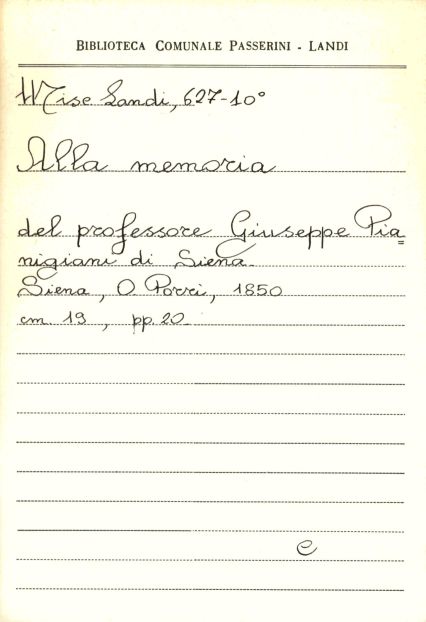 BIBLIOTECA COMUNALE PASSERINI - LANDI
Misc Landi, 627-10°
Alla memoria
del professore Giuseppe Pia=
nigiani di Siena.
Siena, O. Porri, 1850
cm. 19, pp. 20.
e